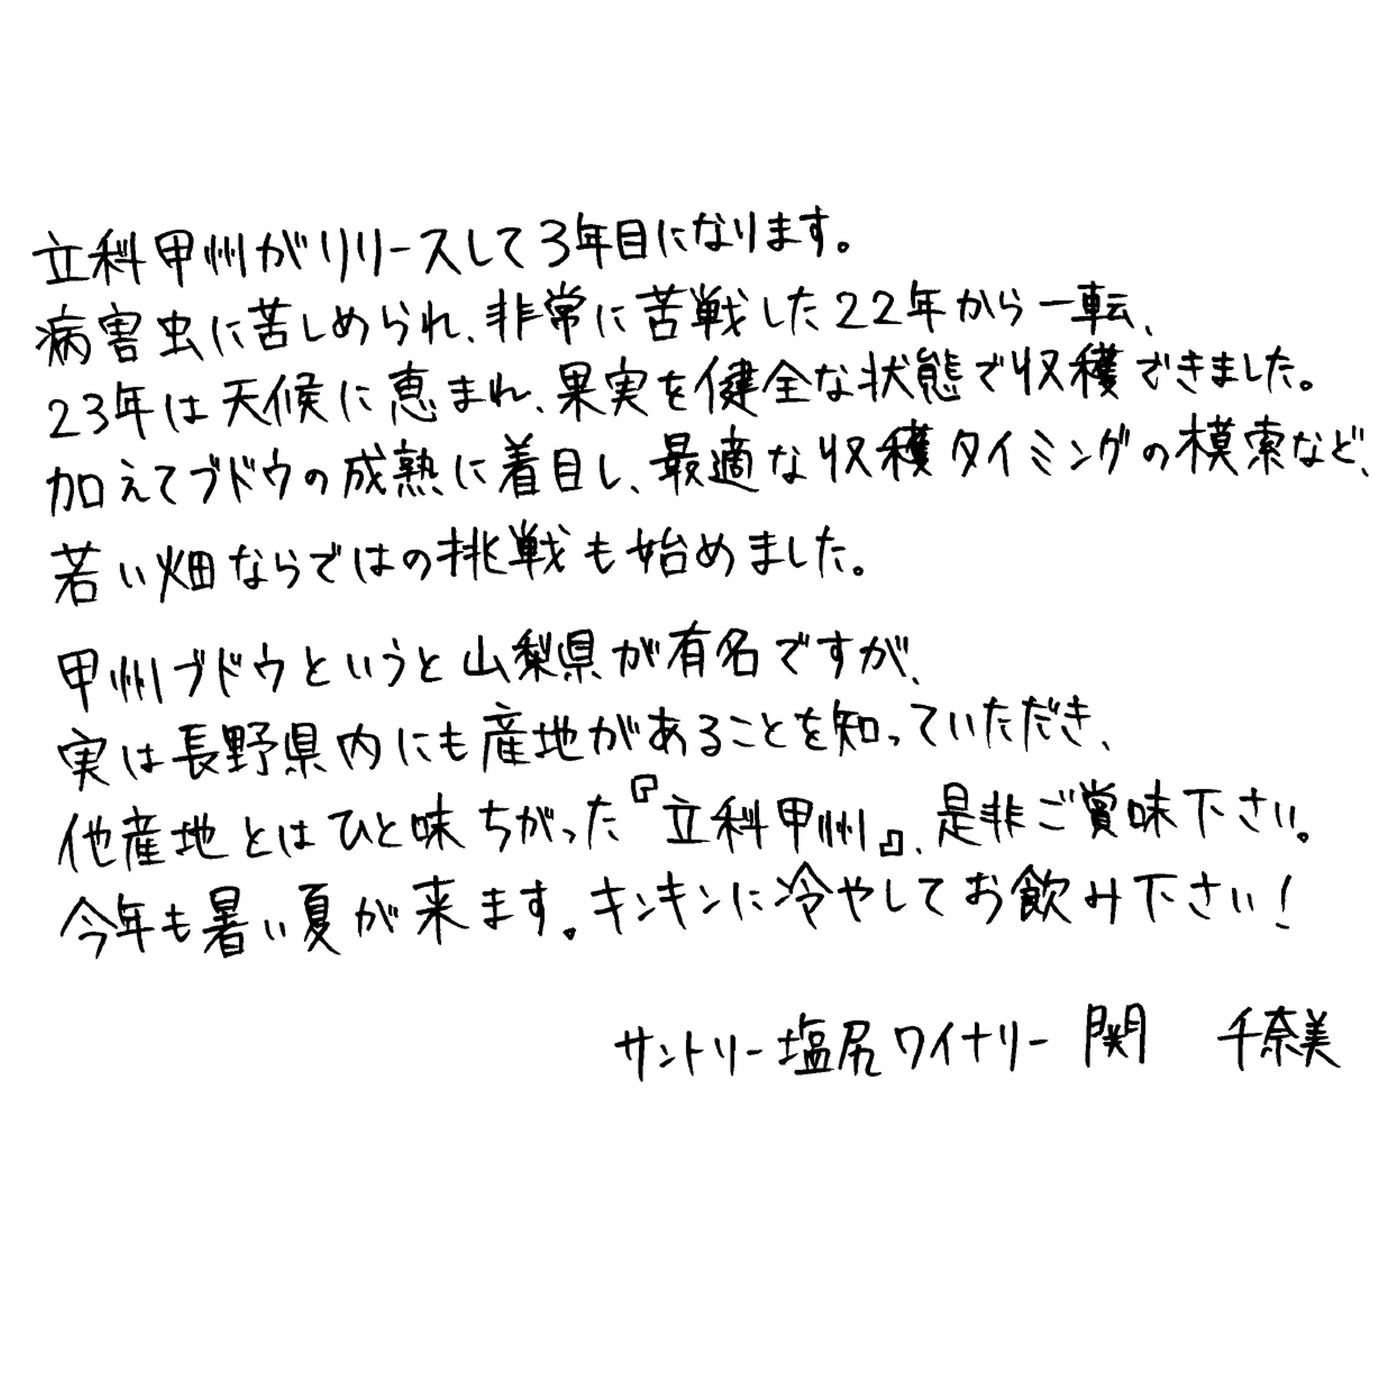 立科甲州がリリースして3年目になります。
病害虫に苦しめられ、非常に苦戦した22年から一転、
23年は天候に恵まれ、果実を健全な状態で収穫できました。
加えてブドウの成熟に着目し、最適な収穫タイミングの模索など、
若い畑ならではの挑戦も始めました。
甲州ブドウというと山梨県が有名ですが、
実は長野県内にも産地があることを知っていただき、
他産地とはひと味ちがった『立科甲州』、是非ご賞味下さい。
今年も暑い夏が来ます。キンキンに冷やしてお飲み下さい！
サントリー塩尻ワイナリー 関　千奈美